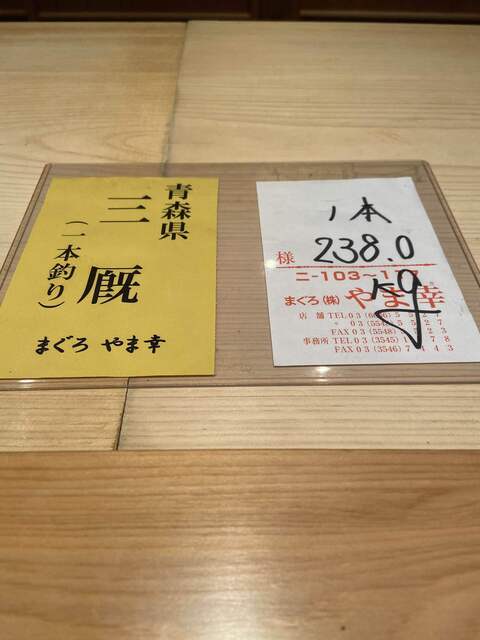 青森県
三厩
(一本釣り)
まぐろ やま幸
1本
238.0
様
ニ-103~1
まぐろ(株) やま幸
店 舗 TEL 03
FAX 03 (5548)
事務所 TEL 03 (3545)
FAX 03 (3546)